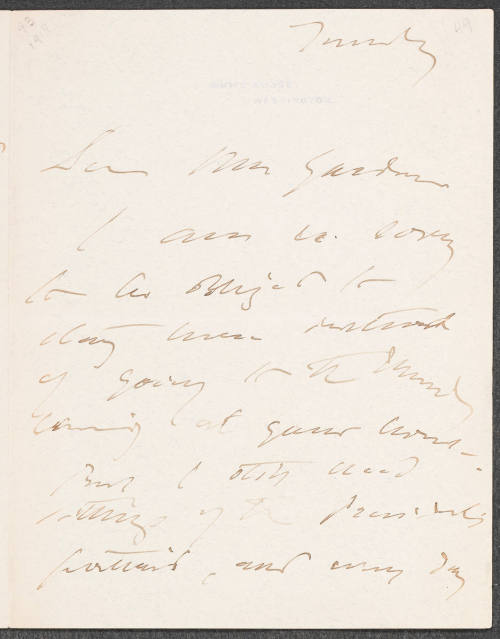 Tuesday
WHITE HOUSE,
WASHINGTON.
Dear Mrs Gardner
I am so sorry
to be obliged to
stay here instead
of going to the Monday
evening at your house.
But I still need
sittings of the President's
portrait, and every day